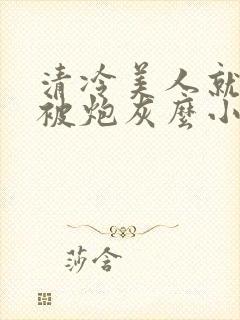 清冷美人就
被炮灰麼小
莎含